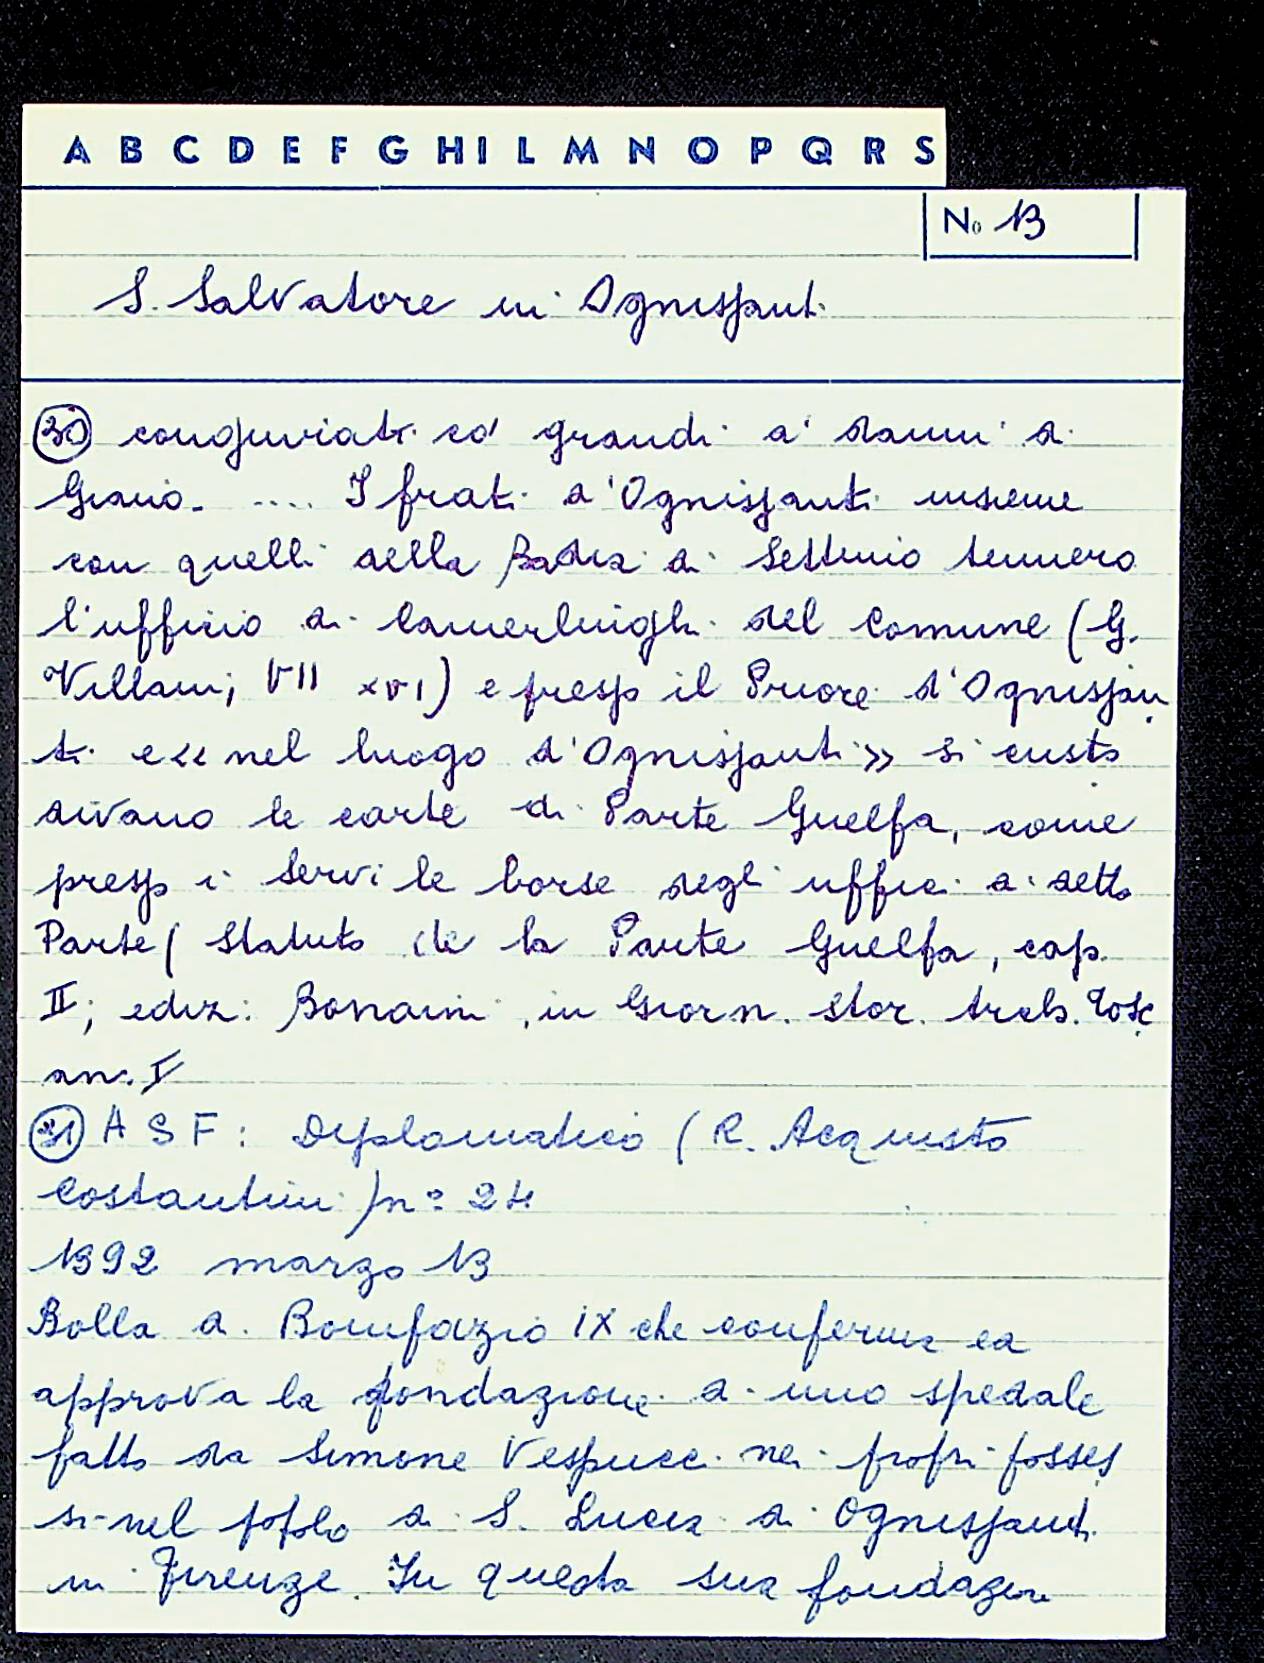 A B C D E F G H I L M N O P Q R S
No 13
S. Salvatore in Ognissanti
30 congiurati co' grandi a' danni di
Giano. .... I frati d'Ognissanti insieme
con quelli della Badia di Settimo tennero
l'ufficio di Camerlinghi del Comune (G.
Villani; VII XVI) e presso il Priore d'Ognissan
ti e << nel luogo d'Ognissanti >> si custo
divano le carte di Parte Guelfa, come
presso i Servi le borse degli uffici di detta
Parte ( Statuto de la Parte Guelfa, cap.
II; ediz: Bonaini, in Giorn. Stor. Arch. Tosc
an. I
31 A S F: Diplomatico (R. Acquisto
Costantini) nº 24
1392 marzo 13
Bolla di Bonifazio IX che conferma ed
approva la fondazione di uno spedale
fatto da Simone Vespucci nei propri posses
si nel popolo di S. Lucia di Ognissanti
in Firenze. In questa sua fondazion